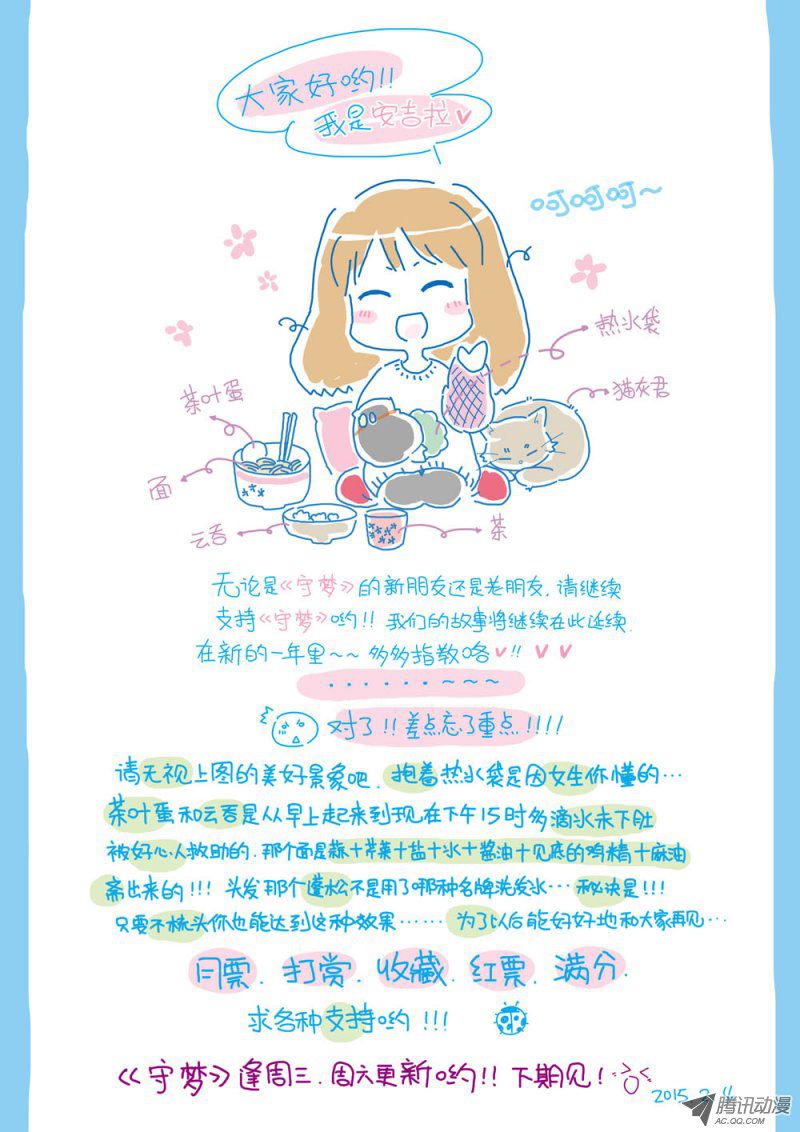 大家好哟!!
我是安吉拉
呵呵呵~
热水袋
猫灰君
茶叶蛋
面
云吞
茶
无论是《守梦》的新朋友还是老朋友,请继续
支持《守梦》哟!! 我们的故事将继续在此延续.
在新的一年里~~ 多多指教咯♥!! ♥ ♥
······~~~
对了!!差点忘了重点!!!!
请无视上图的美好景象吧. 抱着热水袋是因女生你懂的···
茶叶蛋和云吞是从早上起来到现在下午15时多滴水未下肚
被好心人救助的. 那个面是蒜+常菜+盐+水+酱油+见底的鸡精+麻油
斋出来的!!! 头发那个蓬松不是用了哪种名牌洗发水··· 秘诀是!!!
只要不梳头你也能达到这种效果······ 为了以后能好好地和大家再见···
月票. 打赏. 收藏. 红票. 满分.
求各种支持哟!!!
《守梦》逢周三.周六更新哟!! 下期见!
2015.2.11
腾讯动漫
AC.QQ.COM